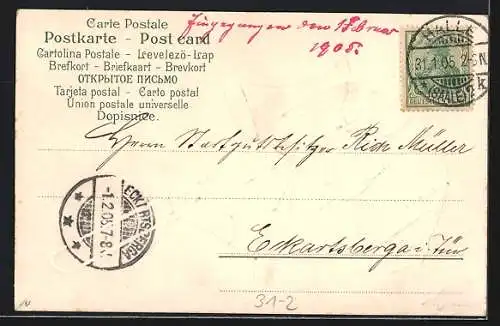 Carte Postale
Postkarte - Post card
Cartolina Postale - Levelező-Lap
Brefkort - Briefkaart - Brevkort
ОТКРЫТОЕ ПИСЬМО
Tarjeta postal - Carto postal
Union postale universelle
Dopisnice.
Eingegangen den 1 Februar
1905.
HALLE
31.1.05. 2-3N.
(SAALE) 2 k
Herrn Stadtgutsbesitzer Rich Müller
ECKARTSBERGA
1.2.05. 7-8
Eckartsberga i. Thür
31-2